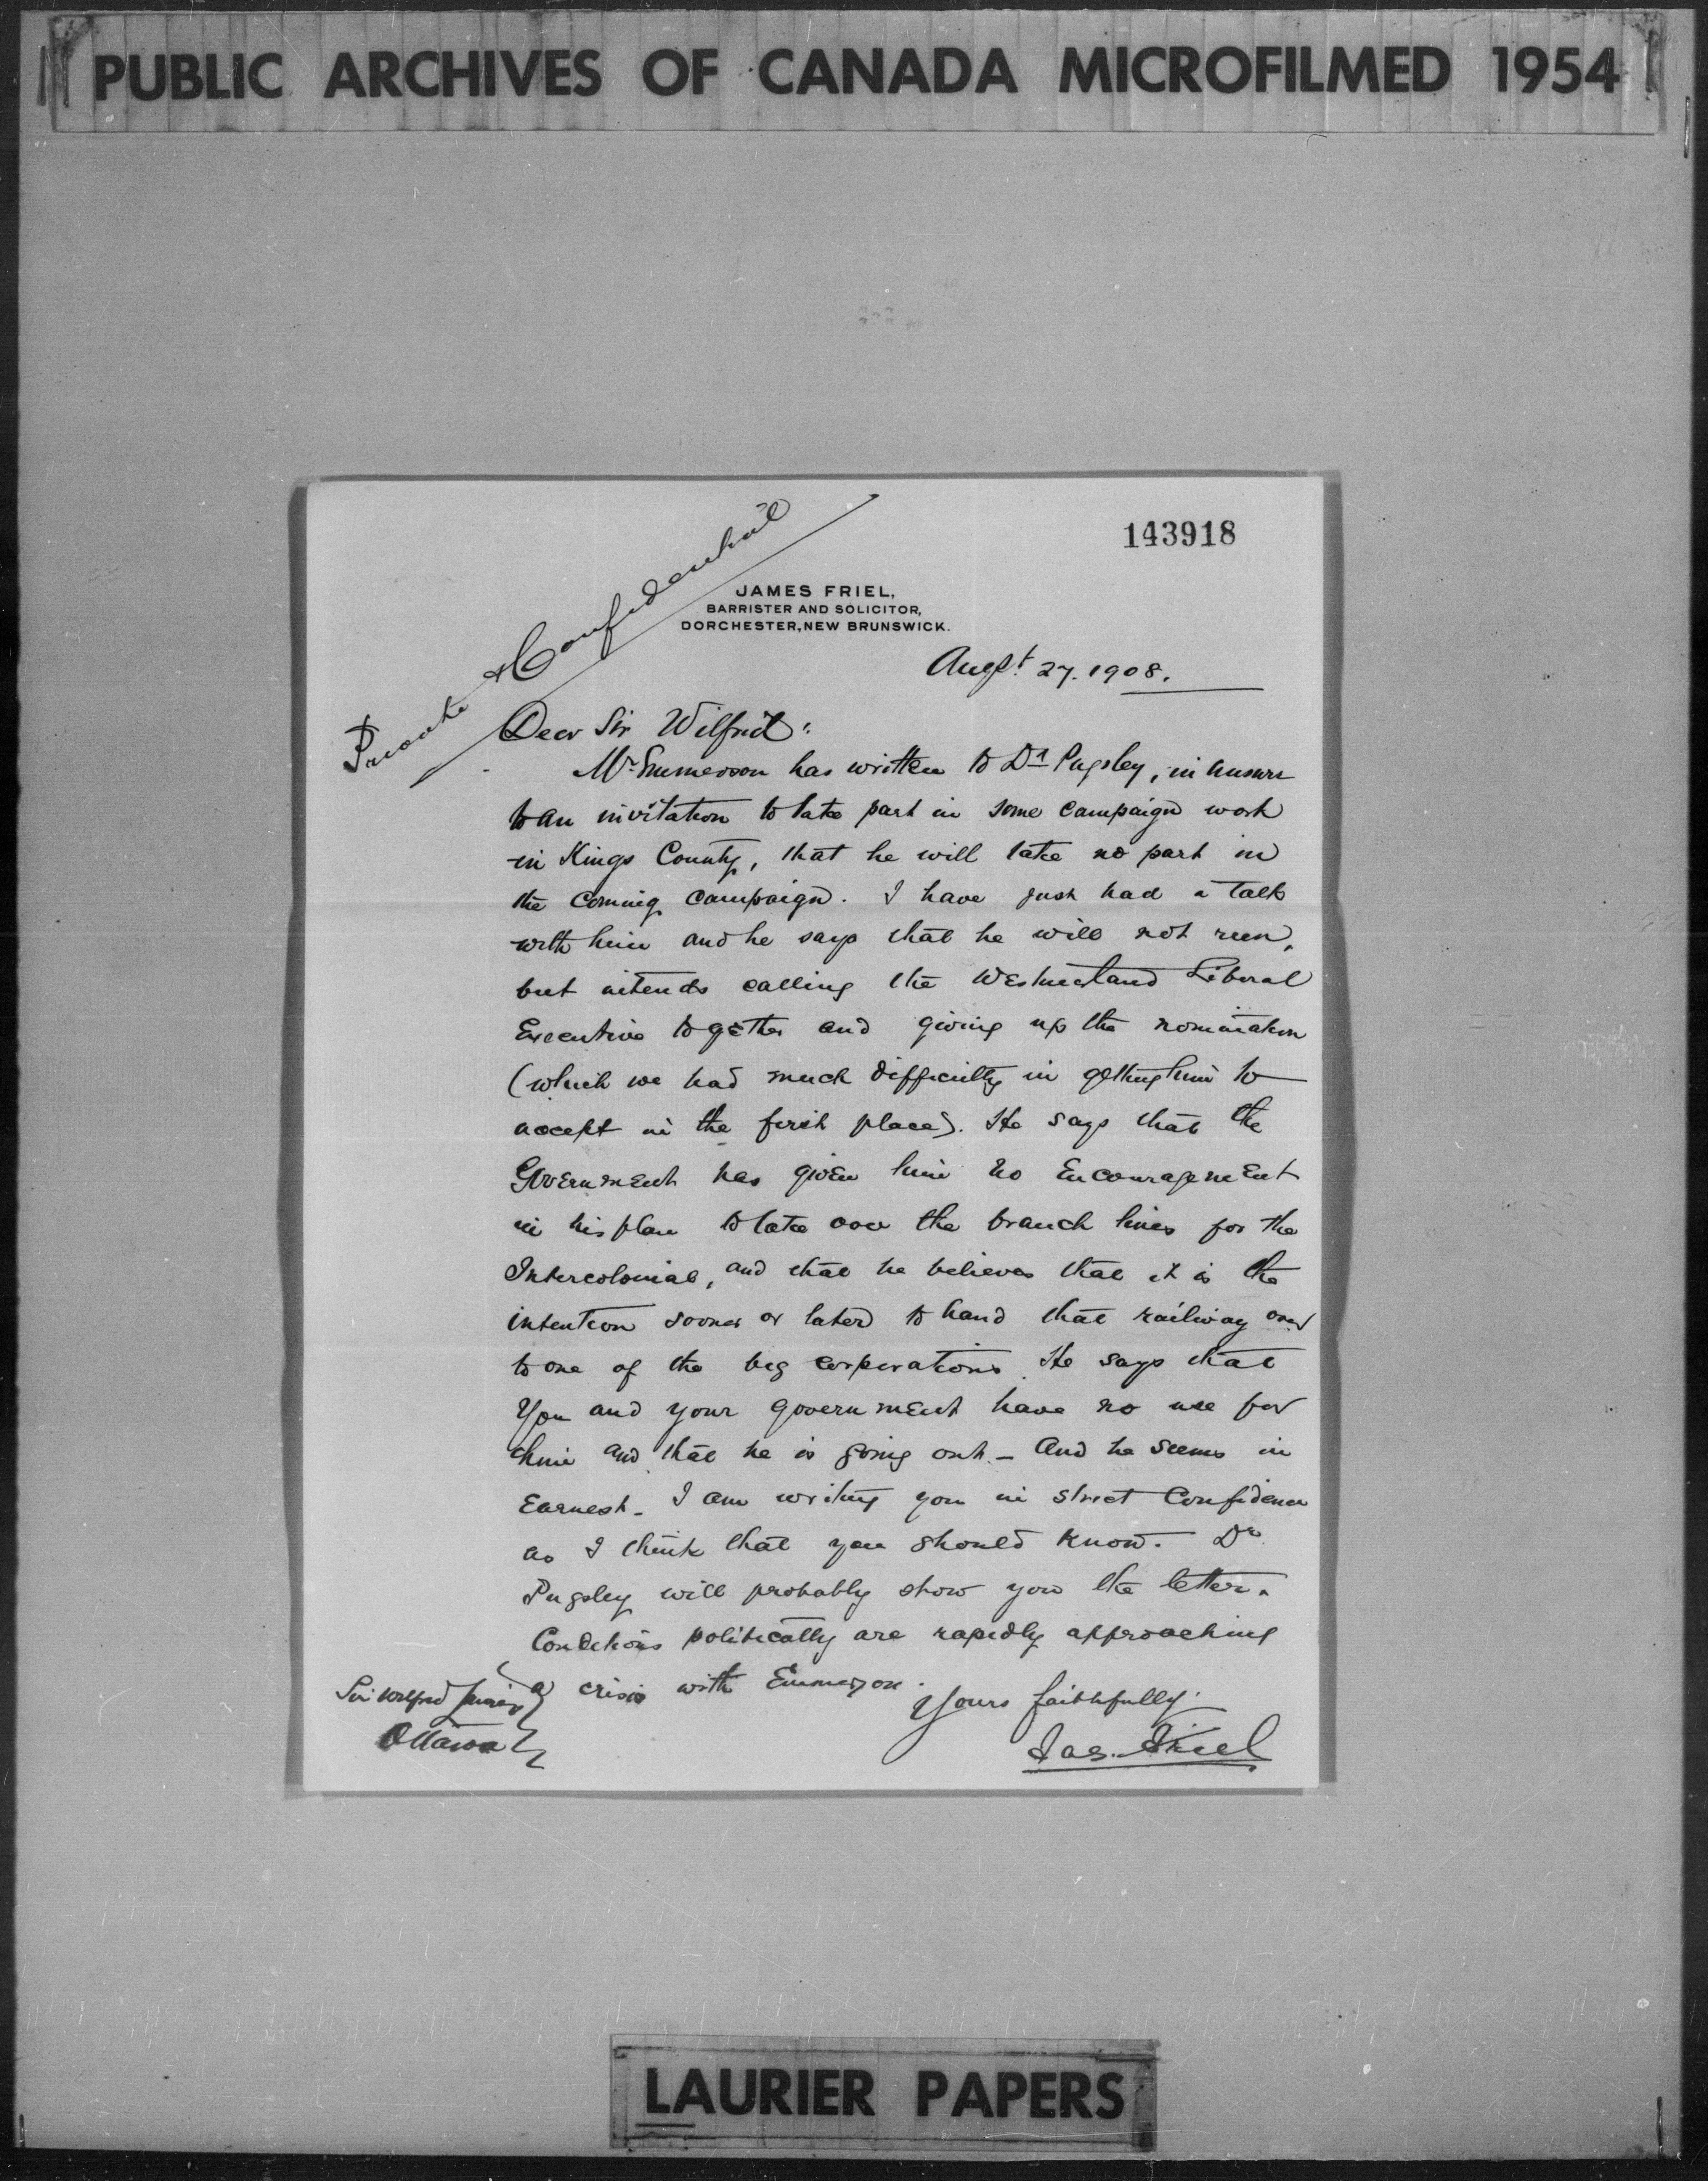 PUBLIC ARCHIVES OF CANADA MICROFILMED 1954
143918
Private & Confidential
JAMES FRIEL,
BARRISTER AND SOLICITOR,
DORCHESTER, NEW BRUNSWICK.
Augst. 27. 1908.
Dear Sir Wilfrid:
Mr Emmerson has written to Dr Pugsley, in answer
to an invitation to take part in some campaign work
in Kings County, that he will take no part in
the coming campaign. I have just had a talk
with him and he says that he will not run,
but intends calling the Westmorland Liberal
Executive together and giving up the nomination
(which we had much difficulty in getting him to
accept in the first place). He says that the
Government has given him no encouragement
in his plan to take over the branch lines for the
Intercolonial, and that he believes that it is the
intention sooner or later to hand that railway over
to one of the big corporations. He says that
you and your government have no use for
him and that he is going out. - And he seems in
earnest. I am writing you in strict confidence
as I think that you should know. Dr
Pugsley will probably show you the letter.
Conditions politically are rapidly approaching
a crisis with Emmerson.
Yours faithfully.
Jas. Friel
Sir Wilfred Laurier
Ottawa
LAURIER PAPERS